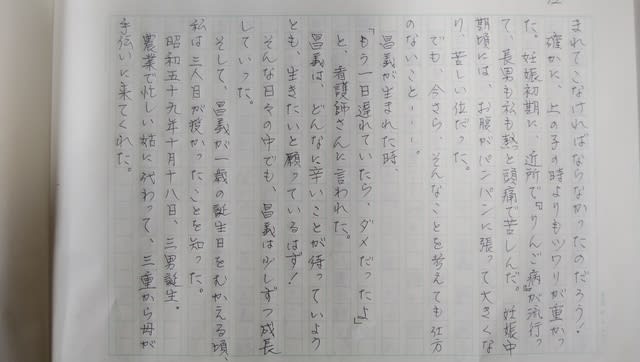 まれてこなければならなかったのだろう!
確かに、上の子の時よりもツワリが重かっ
た。妊娠初期に、近所で『りんご病』が流行っ
て、長男も私も熱と頭痛で苦しんだ。妊娠中
期頃には、お腹がパンパンに張って大きくな
り、苦しい位だった。
でも、今さら、そんなことを考えても仕方
のないこと・・・。
昌義が生まれた時、
「もう一日遅れていたら、ダメだったよ」
と、看護師さんに言われた。
昌義は、どんなに辛いことが待っていよう
とも、生きたいと願っているはず!
そんな日々の中でも、昌義は少しずつ成長
していった。
そして、昌義が一歳の誕生日をむかえる頃、
私は三人目が授かったことを知った。
昭和五十九年十月十八日、三男誕生。
農業で忙しい姑に代わって、三重から母が
手伝いに来てくれた。